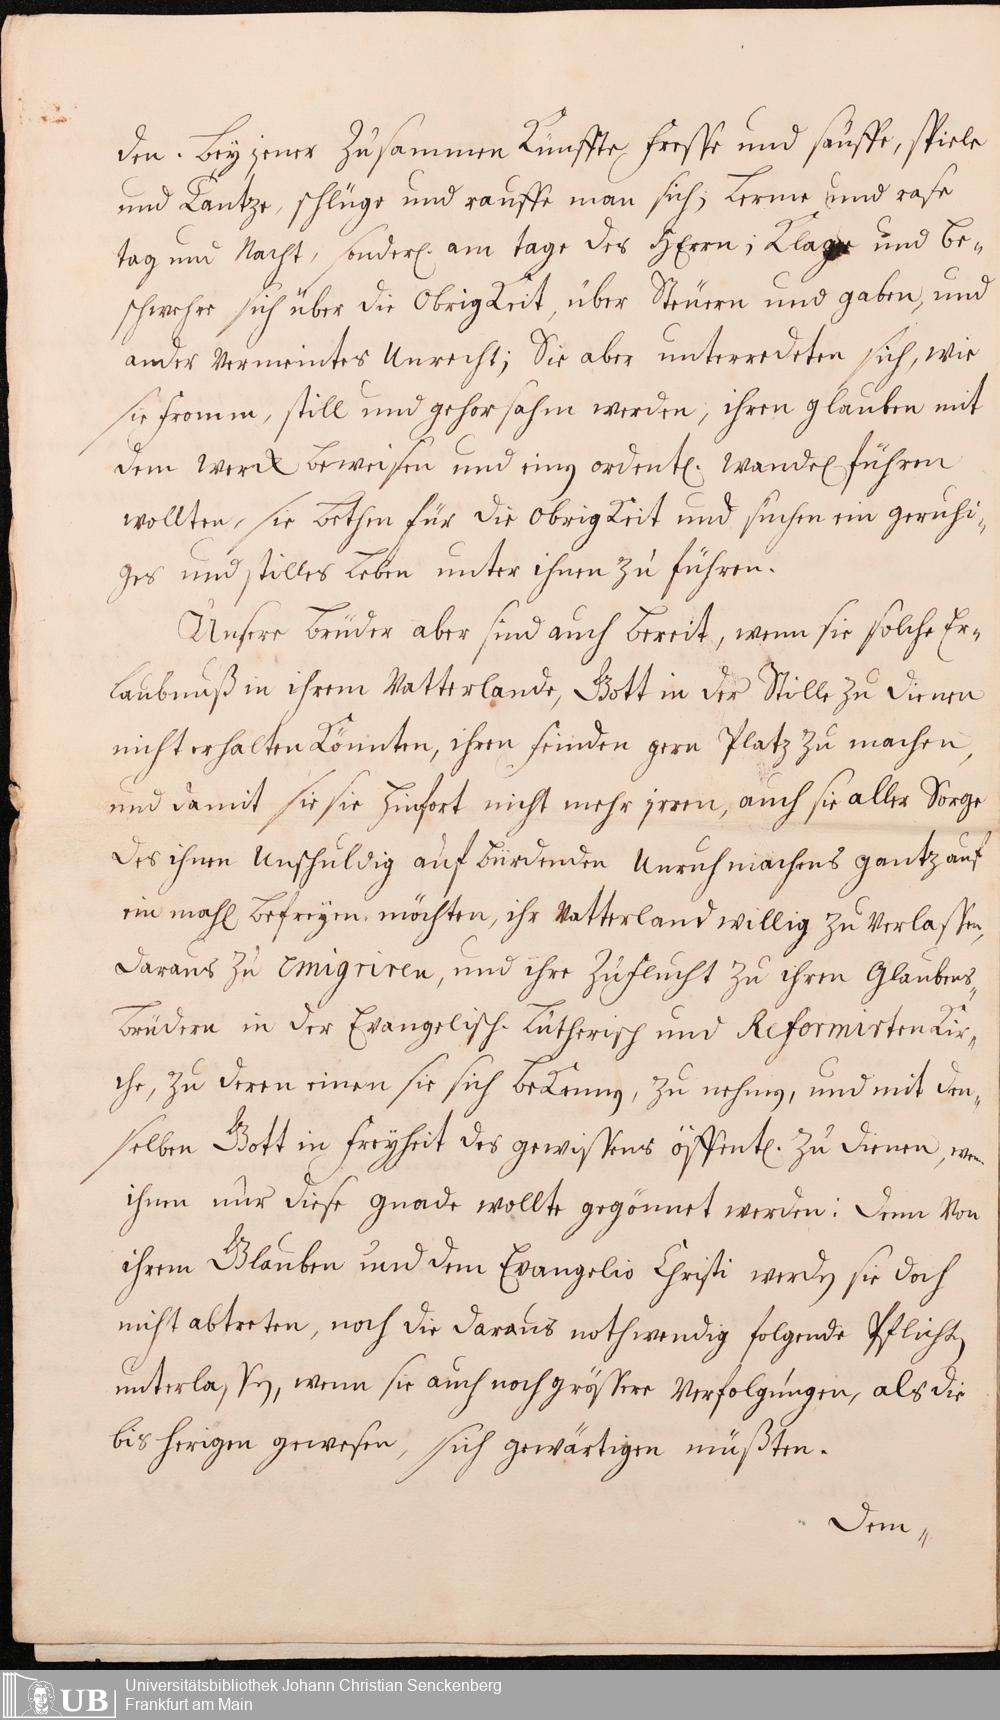 den. Bey jener Zusammen Künffte fresse und sauffe, spiele
und Tantze, schlüge und rauffe man sich; lerme und rase
tag und Nacht, sonderl. am tage des HErrn; Klage und be-
schwehre sich über die ObrigKeit, über Steüern und gaben, und
ander vermeintes Unrecht; Sie aber unterredeten sich, wie
sie fromm, still und gehorsahm werden, ihren glauben mit
dem werck beweisen und einen ordentl. wandel führen
wollten, sie bethen für die ObrigKeit und suchen ein geruhi-
ges und stilles leben unter ihnen zu führen.
Unsere brüder aber sind auch bereit, wenn sie solche Er-
laubnuß in ihrem Vatterlande, Gott in der Stille zu dienen
nicht erhalten Könnten, ihren feinden gern Platz zu machen,
und damit sie sie hinfort nicht mehr jrren, auch sie aller Sorge
des ihnen Unschuldig aufbürdenden Unruhmachens gantz auf
ein mahl befreyen möchten, ihr Vatterland willig zu verlassen,
daraus zu emigriren, und ihre Zuflucht zu ihren Glaubens-
brüdern in der Evangelisch-Lutherisch und Reformirten Kir-
che, zu deren einen sie sich beKennen, zu nehmen, und mit den-
selben Gott in freyheit des gewissens öffentl. zu dienen, wenn
ihnen nur diese gnade wollte gegönnet werden: denn von
ihrem Glauben und dem Evangelio Christi werden sie doch
nicht abtreten, noch die daraus nothwendig folgende Pflichten
unterlassen, wenn sie auch noch grössere Verfolgungen, als die
bisherigen gewesen, sich gewärtigen müßten.
Dem-
UB Universitätsbibliothek Johann Christian Senckenberg
Frankfurt am Main